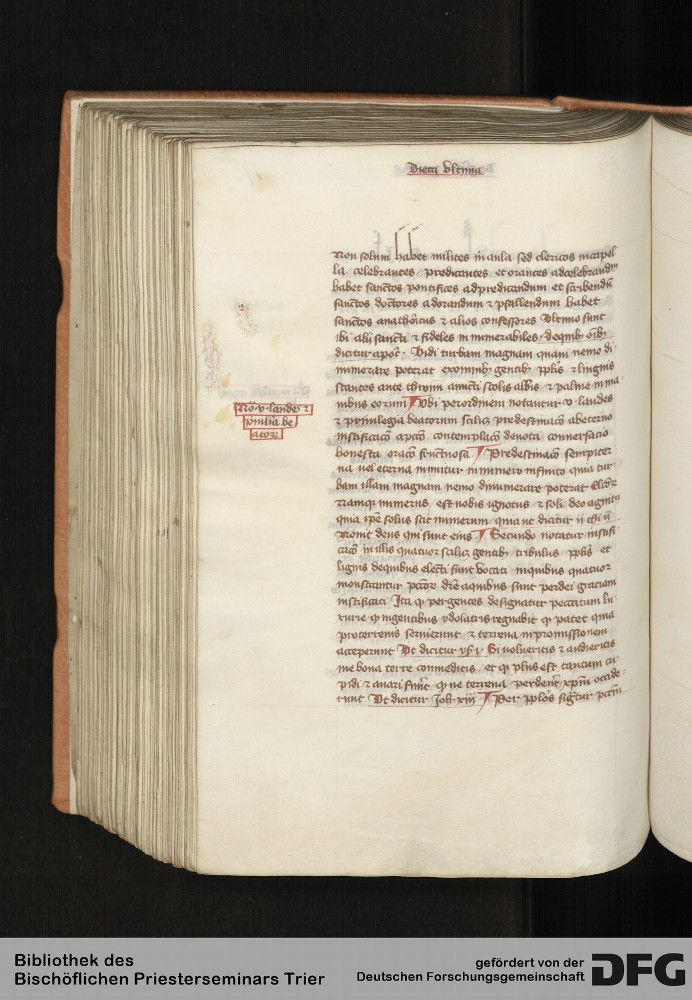 Dieta Vltima
Non solum habet milites in aula sed clericos in capel
la celebrantes predicantes et orantes ad celebrandum
habet sanctos pontifices ad predicandum et scribendu
sanctos doctores ad orandum et psallendum habet
sanctos anachoritas et alios confessores Vltimo sunt
ibi alii sancti et fideles in numerabiles de quibus omnibus
dicitur apoc Vidi turbam magnam quam nemo di
numerare poterat ex omnibus gentibus pplis et linguis
stantes ante thronum amicti stolis albis et palme in ma
nibus eorum Vbi per ordinem notantur v laudes
et priuilegia beatorum scilicet predestinacio ab eterno
iustificacio contemplacio deuota conuersacio
honesta oracio fructuosa Predestinacio sempiter
na uel eterna innuitur in numero infinito quia tur
bam illam magnam nemo dinumerare poterat
numerus est nobis ignotus et soli deo cognitus
quia ipse solus scit numerum quia ut dicitur ii thi ii
Nouit deus qui sunt eius Secundo notatur iustifi
cacio in illis quatuor scilicet gentibus tribubus pplis et
lignis de quibus electi sunt vocati in quibus quatuor
monstrantur a quibus sunt per dei graciam
iustificati Ita quod per gentes designatur peccatum lu
xurie quod in gentibus ydolatris regnabit quod patet quia
pro terrenis seruierunt et terrena in promissionem
acceperunt Vt dicitur ysa i Si volueritis et audieritis
me bona terre commeditis et quod plus est tantum cu
pidi et auari fuerunt quod ne terrena perderent xpm occide
runt Vt dicitur Joh xiii Per pplos signatur pctm
No v laudes et
priuilegia be
atorum
Bibliothek des
Bischöflichen Priesterseminars Trier
gefördert von der
Deutschen Forschungsgemeinschaft
DFG